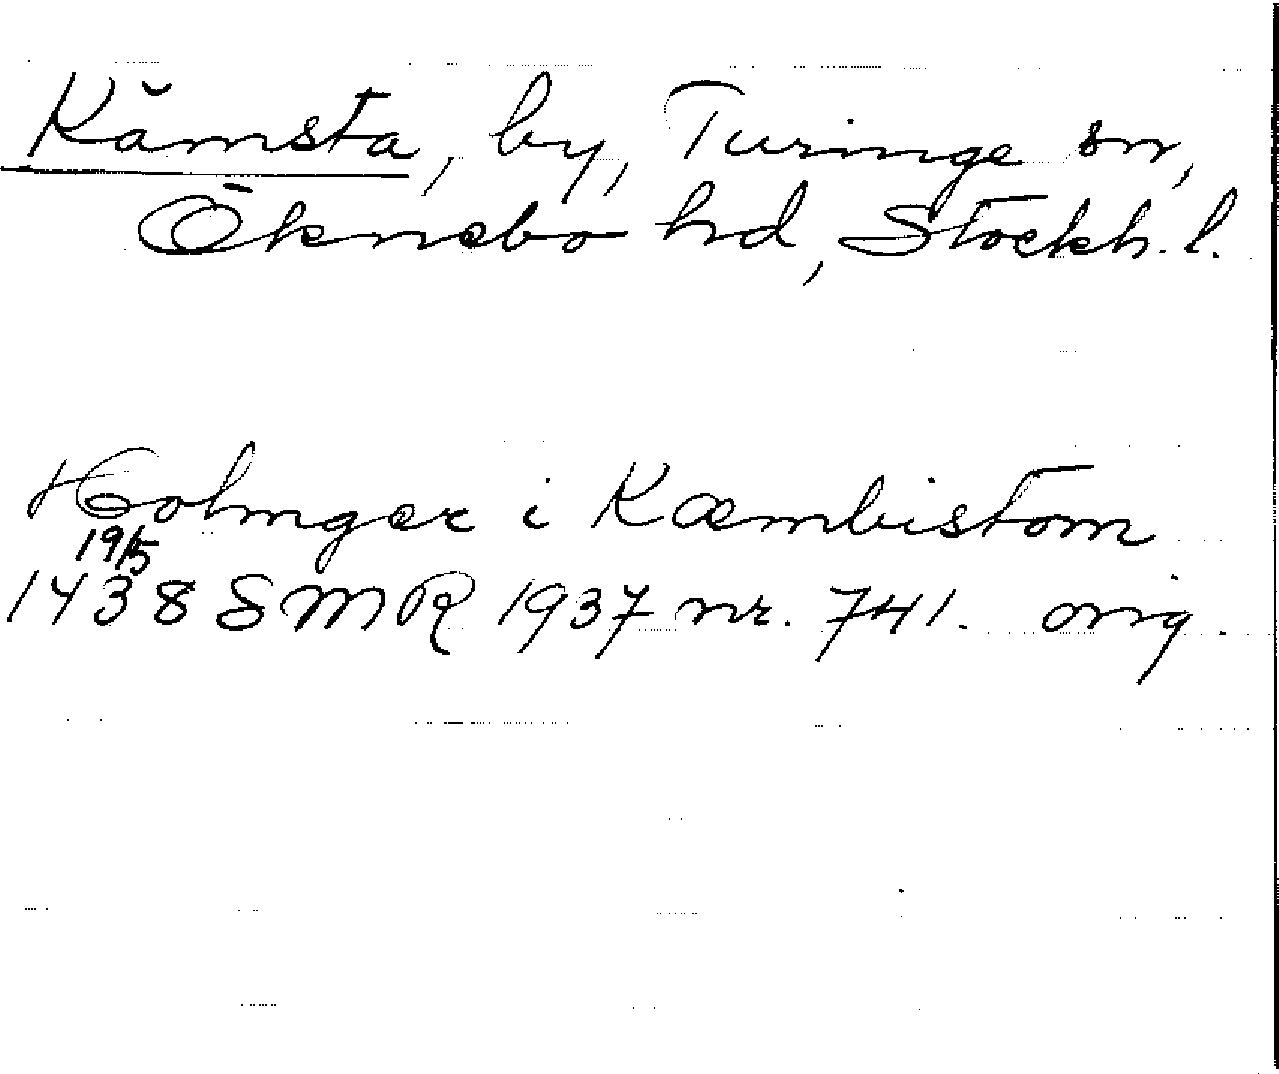 Kämsta, by, Turinge sn,
Öknebo hd, Stockh. l.
Holmger i Kæmbistom
19/5
1438 SMR 1937 nr. 741. orig.